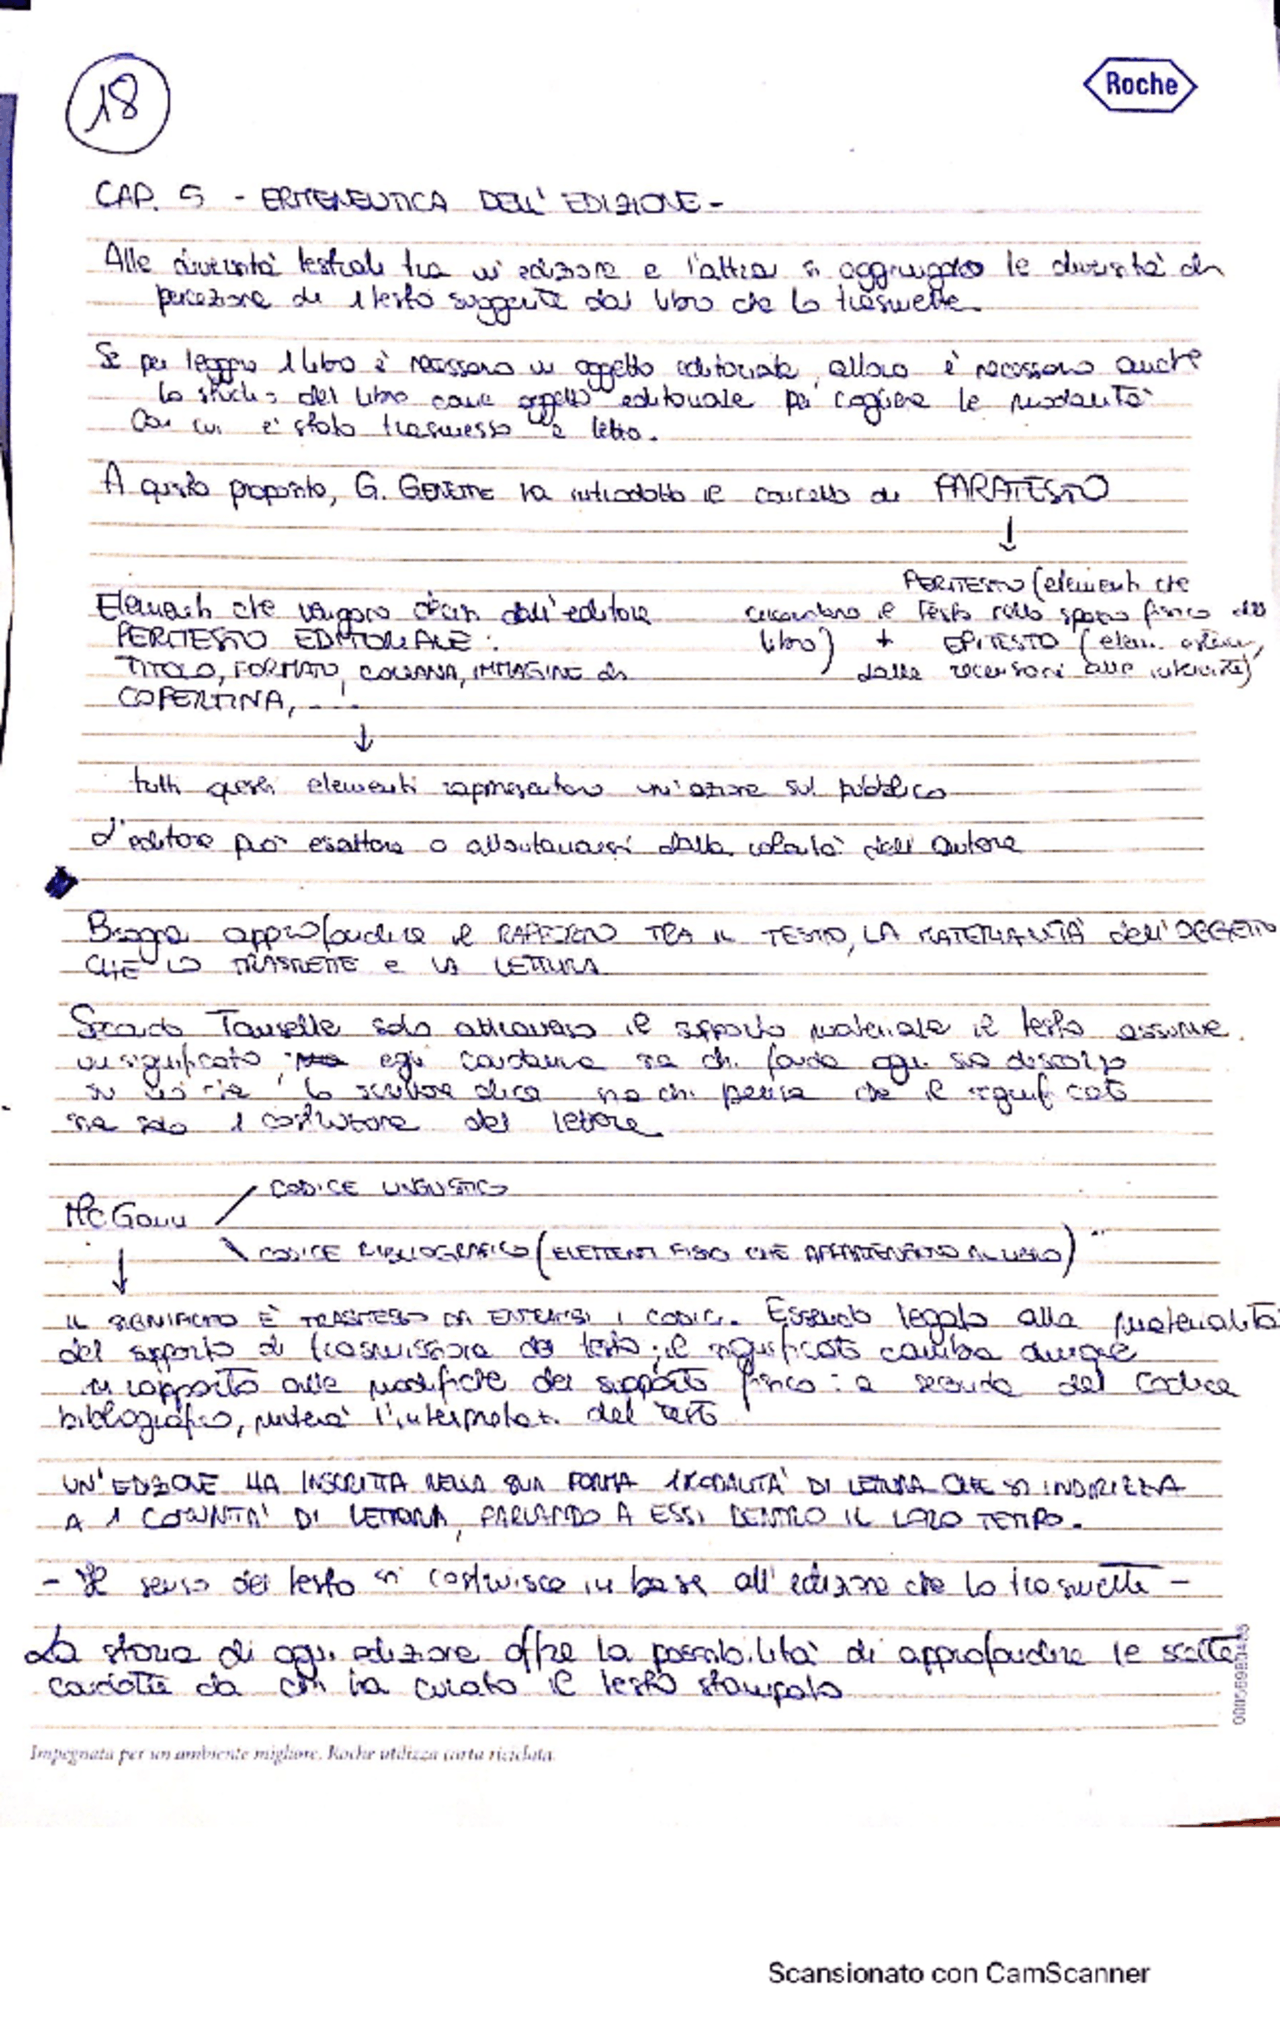 18
Roche
CAP. 5 - ERMENEUTICA DELL'EDIZIONE -
Alle diversità testuali tra un'edizione e l'altra si aggiungono le diversità di
percezione di 1 testo suggerite dal libro che lo trasmette.
Se per leggere 1 libro è necessario un oggetto editoriale, allora è necessario anche
lo studio del libro come oggetto editoriale per cogliere le modalità
con cui è stato trasmesso e letto.
A questo proposito, G. Genette ha introdotto il concetto di PARATESTO
↓
PERITESTO (elementi che
circondano il testo nello spazio fisico del
libro) + EPITESTO (elem. esterni,
dalle recensioni alle interviste)
Elementi che vengono decisi dall'editore
PERITESTO EDITORIALE:
TITOLO, FORMATO, COLLANA, IMMAGINE di
COPERTINA, ....
↓
tutti questi elementi rappresentano un'azione sul pubblico
L'editore può esattare o allontanarsi dalla volontà dell'autore
Bisogna approfondire il RAPPORTO TRA IL TESTO, LA MATERIALITÀ dell'OGGETTO
CHE LO TRASMETTE e LA LETTURA
Secondo Tanselle solo attraverso il supporto materiale il testo assume
un significato; egli condanna sia chi fonda ogni suo discorso
su ciò che lo scrittore dica sia chi pensa che il significato
sia solo 1 costruzione del lettore
McGann / CODICE LINGUISTICO
\ CODICE BIBLIOGRAFICO (ELEMENTI FISICI CHE APPARTENGONO AL LIBRO)
↓
IL SIGNIFICATO È TRASMESSO DA ENTRAMBI I CODICI. Essendo legato alla materialità
del supporto di trasmissione del testo, il significato cambia dunque
in rapporto alle modifiche del supporto fisico: a seconda del codice
bibliografico, muterà l'interpretaz. del testo
UN'EDIZIONE HA INSCRITTA NELLA SUA FORMA 1 MODALITÀ DI LETTURA CHE SI INDIRIZZA
A 1 COMUNITÀ DI LETTORI, PARLANDO A ESSI DENTRO IL LORO TEMPO.
- Il senso del testo si costruisce in base all'edizione che lo trasmette -
La storia di ogni edizione offre la possibilità di approfondire le scelte
condotte da chi ha curato il testo stampato
Impegnata per un ambiente migliore. Roche utilizza carta riciclata.
Scansionato con CamScanner